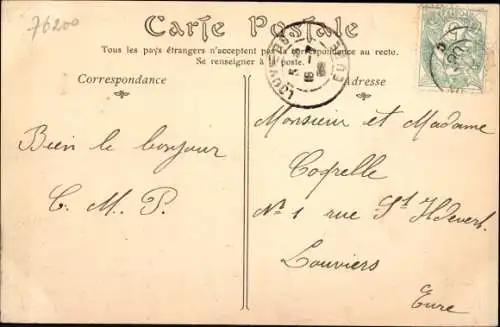 76200
Carte Postale
Tous les pays étrangers n'acceptent pas la correspondance au recto.
Se renseigner à la poste.
Correspondance
Adresse
LOUVIERS
EURE
Bien le bonjour
C. M. P.
Monsieur et Madame
Coqrelle
N° 1 rue St Hdevert
Louviers
Eure